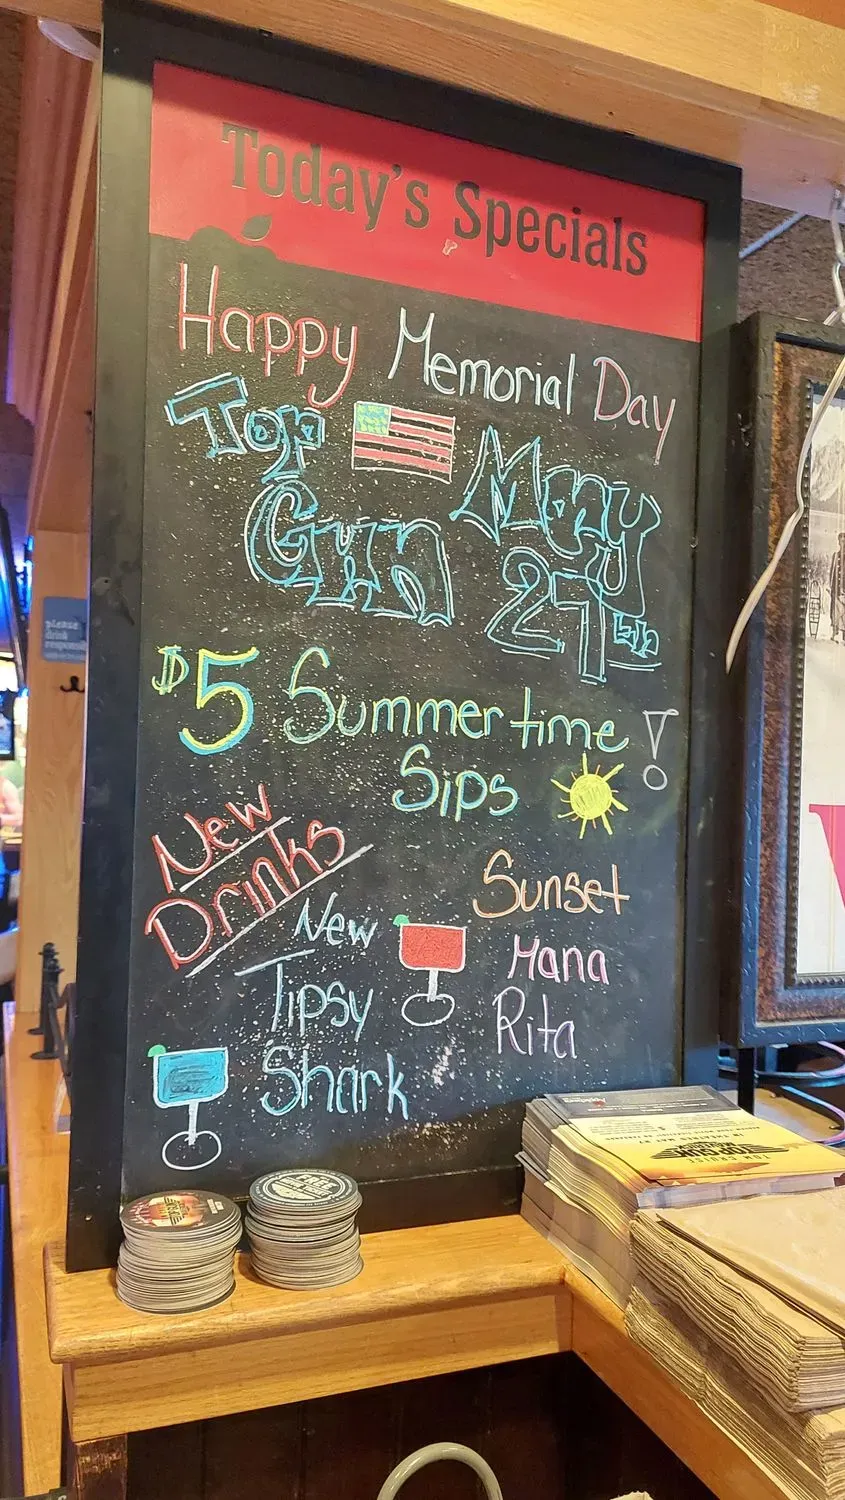 Today's Specials
Happy Memorial Day
Top
Gun
May
27th
$5 Summertime
Sips !
New
Drinks
New
Tipsy
Shark
Sunset
Mana
Rita
please
drink
TOM CRUISE
TOP GUN
FREE